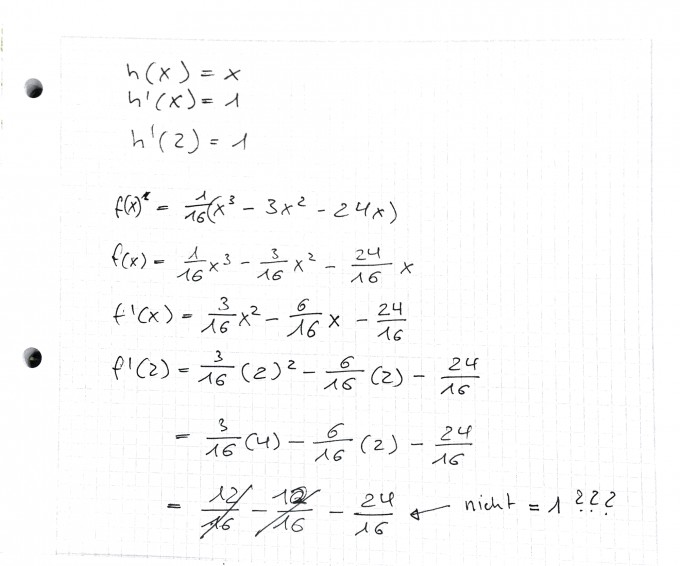 h(x) = x
h'(x) = 1
h'(2) = 1
f(x) = 1/16(x³ - 3x² - 24x)
f(x) = 1/16 x³ - 3/16 x² - 24/16 x
f'(x) = 3/16 x² - 6/16 x - 24/16
f'(2) = 3/16 (2)² - 6/16 (2) - 24/16
= 3/16 (4) - 6/16 (2) - 24/16
= 12/16 - 12/16 - 24/16 ← nicht = 1 ???